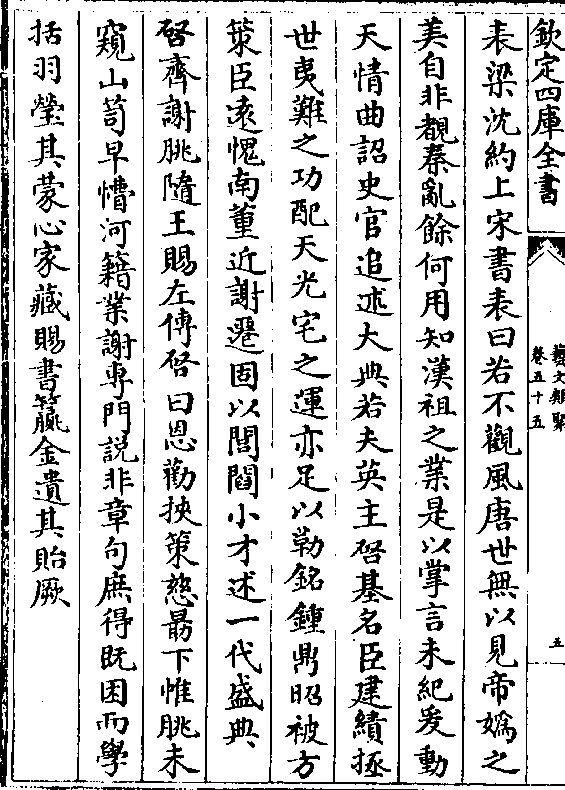 欽定四庫全書
藝文類聚
卷五十五
五
表梁沈約上宋書表曰若不觀風唐世無以見帝媯之
美自非覩秦亂餘何用知漢祖之業是以掌言未紀爰動
天情曲詔史官追述大典若夫英主啓基名臣建績拯
世夷難之功配天光宅之運亦足以勒銘鍾鼎昭被方
策臣遠愧南董近謝遷固以閭閻小才述一代盛典
啓齊謝朓隨王賜左傳啓曰恩勸挾策慈勗下帷朓未
窺山笥早懵河籍業謝専門說非章句庶得既困而學
括羽瑩其蒙心家藏賜書籯金遺其貽厥